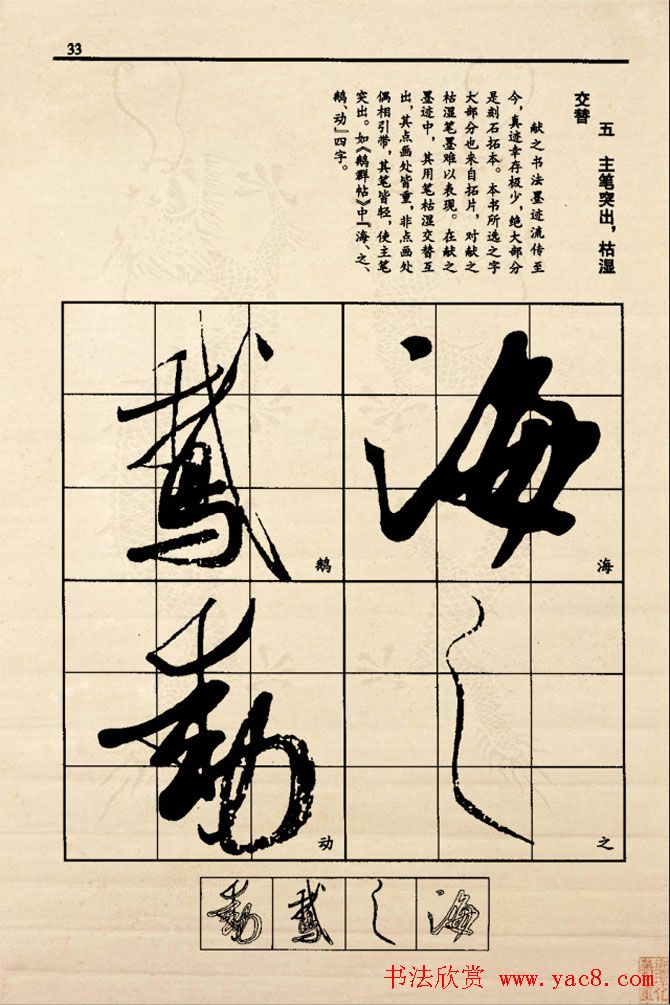 33
五　主笔突出，枯湿
交替
献之书法墨迹流传至
今，真迹幸存极少，绝大部分
是刻石拓本。本书所选之字
大部分也来自拓片，对献之
枯湿笔墨难以表现。在献之
墨迹中，其用笔枯湿交替互
出，其点画处皆重，非点画处
偶相引带，其笔皆轻，使主笔
突出。如《鹅群帖》中『海、之、
鹅、动』四字。
海
海
之
之
鵞
鹅
動
动
海之鵞動
书法欣赏 www.yac8.com